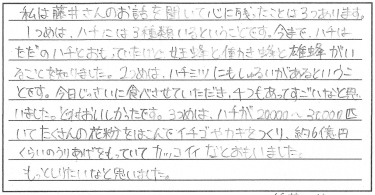 私は藤井さんのお話を聞いて心に残ったことは3つあります。
1つめは、ハチには3種類いるということです。今まで、ハチは
ただのハチとおもっていたけど女王蜂と働き蜂と雄蜂がい
ることを知りました。2つめは、ハチミツにもしゅるいがあるというこ
とです。今日じっさいに食べさせていただき、4つもあってすごいなと思
いました。とてもおいしかったです。3つめは、ハチが20000〜30000匹
いてたくさんの花粉をはこんでイチゴやカキをつくり、約6億円
くらいのうりあげをもっていてカッコイイなとおもいました。
もっとしりたいなと思いました。